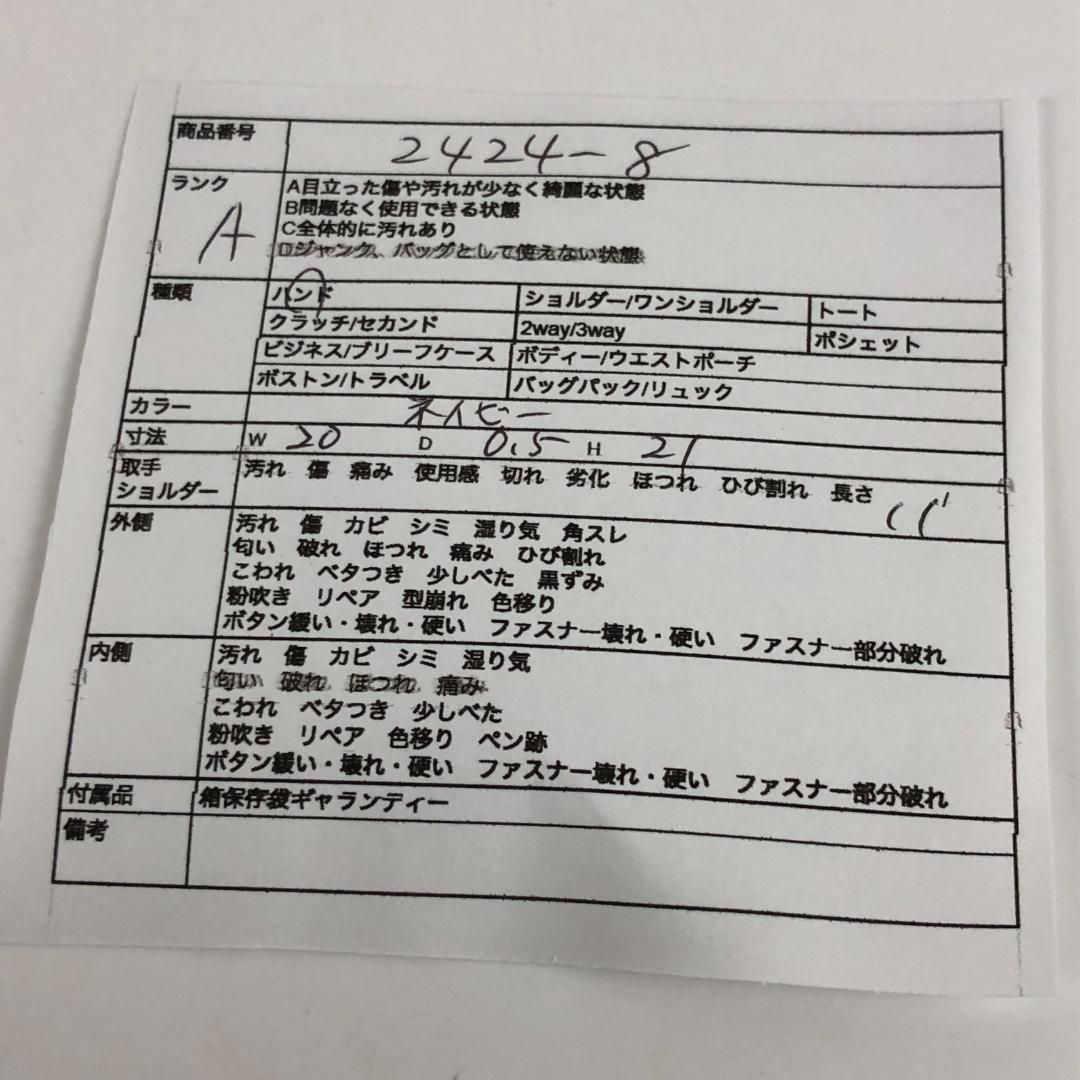 商品番号 2424-8
ランク A
A目立った傷や汚れが少なく綺麗な状態
B問題なく使用できる状態
C全体的に汚れあり
Dジャンク、バッグとして使えない状態
種類 ハンド ショルダー/ワンショルダー トート
クラッチ/セカンド 2way/3way ポシェット
ビジネス/ブリーフケース ボディー/ウエストポーチ
ボストン/トラベル バッグパック/リュック
カラー ネイビー
寸法 W 20 D 0.5 H 21
取手 汚れ 傷 痛み 使用感 切れ 劣化 ほつれ ひび割れ 長さ
ショルダー
外側 汚れ 傷 カビ シミ 湿り気 角スレ
匂い 破れ ほつれ 痛み ひび割れ
こわれ ベタつき 少しべた 黒ずみ
粉吹き リペア 型崩れ 色移り
ボタン緩い・壊れ・硬い ファスナー壊れ・硬い ファスナー部分破れ
内側 汚れ 傷 カビ シミ 湿り気
匂い 破れ ほつれ 痛み
こわれ ベタつき 少しべた
粉吹き リペア 色移り ペン跡
ボタン緩い・壊れ・硬い ファスナー壊れ・硬い ファスナー部分破れ
付属品 箱保存袋ギャランティー
備考